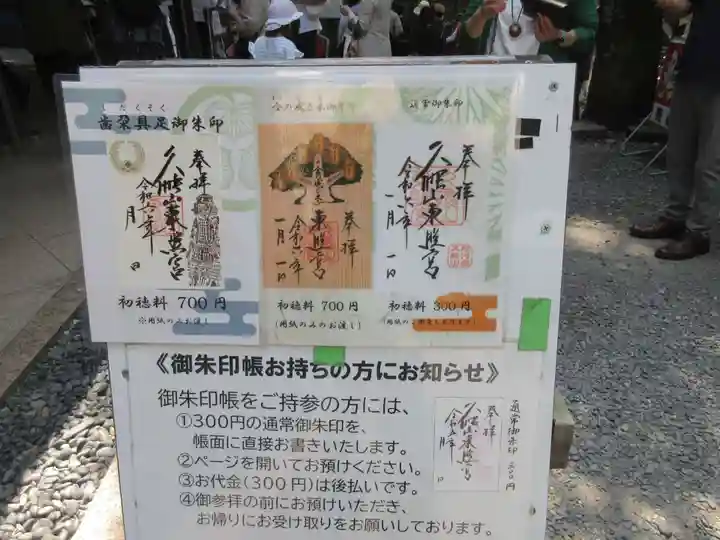 しだくそく
歯朶具足御朱印
奉拝
久能山東照宮
令和六年
月
日
奉拝
東照宮
令和六年
一月一日
通常御朱印
奉拝
久能山東照宮
令和六年
一月一日
初穂料 700円
※用紙のみお渡し
初穂料 700円
(用紙のみのお渡し)
初穂料 300円
《御朱印帳お持ちの方にお知らせ》
御朱印帳をご持参の方には、
①300円の通常御朱印を、
帳面に直接お書きいたします。
②ページを開いてお預けください。
③お代金(300円)は後払いです。
④御参拝の前にお預けいただき、
お帰りにお受け取りをお願いしております。
通常御朱印 三〇〇円
奉拝
久能山東照宮
月
日